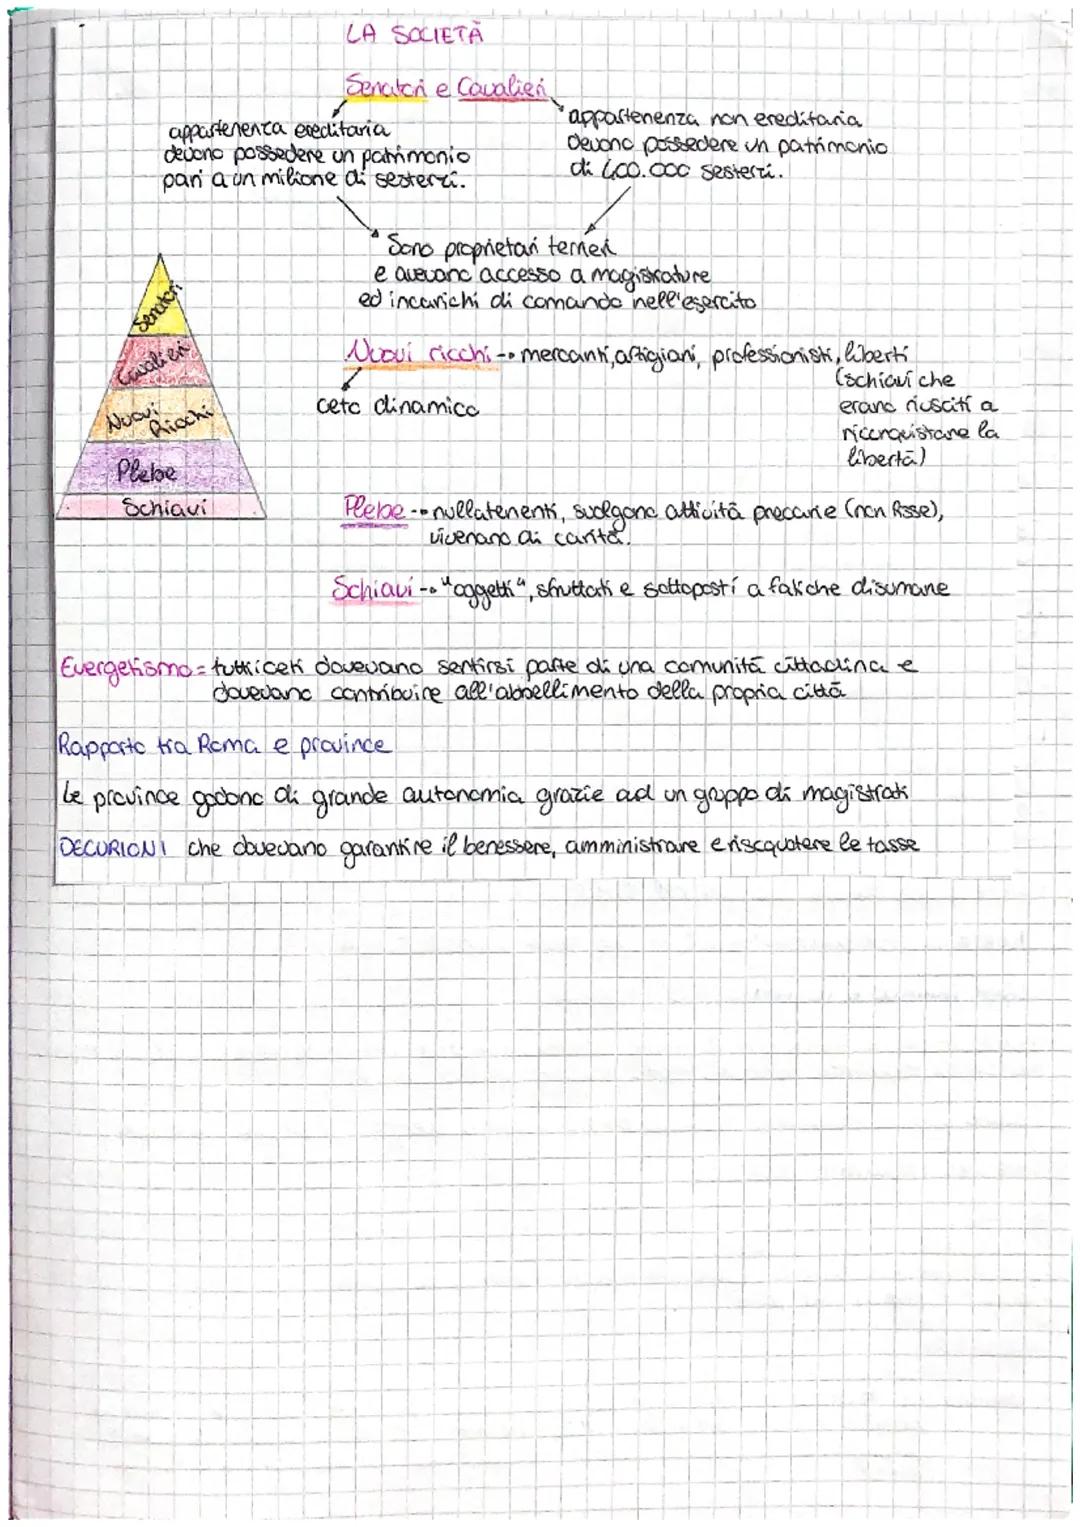 LA SOCIETÀ
Senatori e Cavalieri
appartenenza ereditaria
devono possedere un patrimonio
pari a un milione di sesterzi.
appartenenza non ereditaria
Devono possedere un patrimonio
di 400.000 sesterzi.
Sono proprietari terrieri
e avevano accesso a magistrature
ed incarichi di comando nell'esercito
Senatori
Cavalieri
Nuovi
Ricchi
Plebe
Schiavi
Nuovi ricchi → mercanti, artigiani, professionisti, liberti
(schiavi che
erano riusciti a
riconquistare la
libertà)
ceto dinamico
Plebe → nullatenenti, svolgono attività precarie (non fisse),
vivevano di carità.
Schiavi → "oggetti", sfruttati e sottoposti a fatiche disumane
Evergetismo = tutti i ceti dovevano sentirsi parte di una comunità cittadina e
dovevano contribuire all'abbellimento della propria città
Rapporto tra Roma e province
Le province godono di grande autonomia grazie ad un gruppo di magistrati
DECURIONI che dovevano garantire il benessere, amministrare e riscquotere le tasse